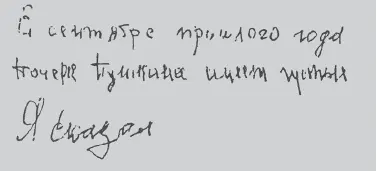 В сентябре прошлого года
почерк Пушкина имеет
Я сказал